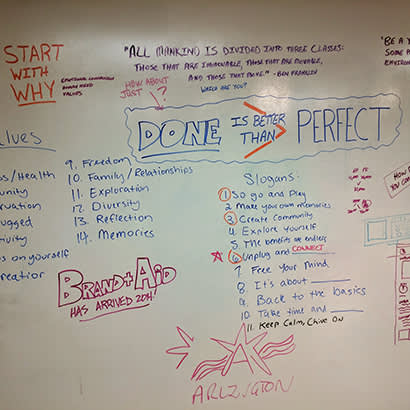 START
WITH
WHY
EMOTIONAL CONNECTION
HUMAN NEED
VALUES
"ALL MANKIND IS DIVIDED INTO THREE CLASSES:
THOSE THAT ARE IMMOVABLE, THOSE THAT ARE MOVABLE,
AND THOSE THAT MOVE." - BEN FRANKLIN
WHICH ARE YOU?
"BE A
SOME
ENVIRO
HOW ABOUT
JUST ?
DONE IS BETTER
THAN PERFECT
lves
s/Health
unity
rvation
ugged
tivity
s on yourself
creation
9. Freedom
10. Family/Relationships
11. Exploration
12. Diversity
13. Reflection
14. Memories
Slogans:
1 So go and Play
2 Make your own memories
3. Create Community
4. Explore Yourself
5. The benefits are endless
6 Unplug and CONNECT
7. Free Your Mind
8. It's about ____
9. Back to the basics
10. Take time and ____
11. Keep Calm, Chive On
HOW
YOU
CO
BRAND+AID
HAS ARRIVED 2014!
A
ARLINGTON